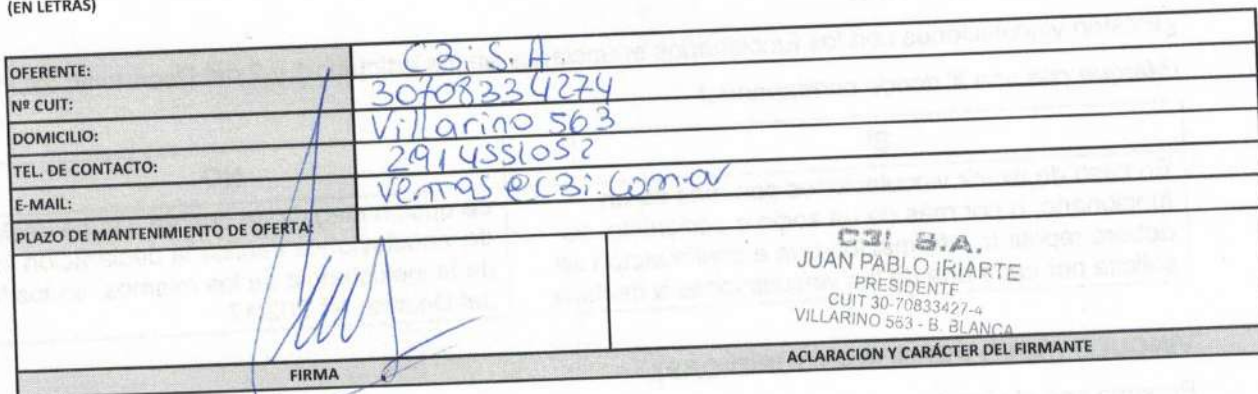 (EN LETRAS)
OFERENTE: C3i S.A
Nº CUIT: 30708334274
DOMICILIO: Villarino 563
TEL. DE CONTACTO: 2914551052
E-MAIL: ventas@c3i.com.ar
PLAZO DE MANTENIMIENTO DE OFERTA:
C3I S.A.
JUAN PABLO IRIARTE
PRESIDENTE
CUIT 30-70833427-4
VILLARINO 563 - B. BLANCA
FIRMA
ACLARACION Y CARÁCTER DEL FIRMANTE